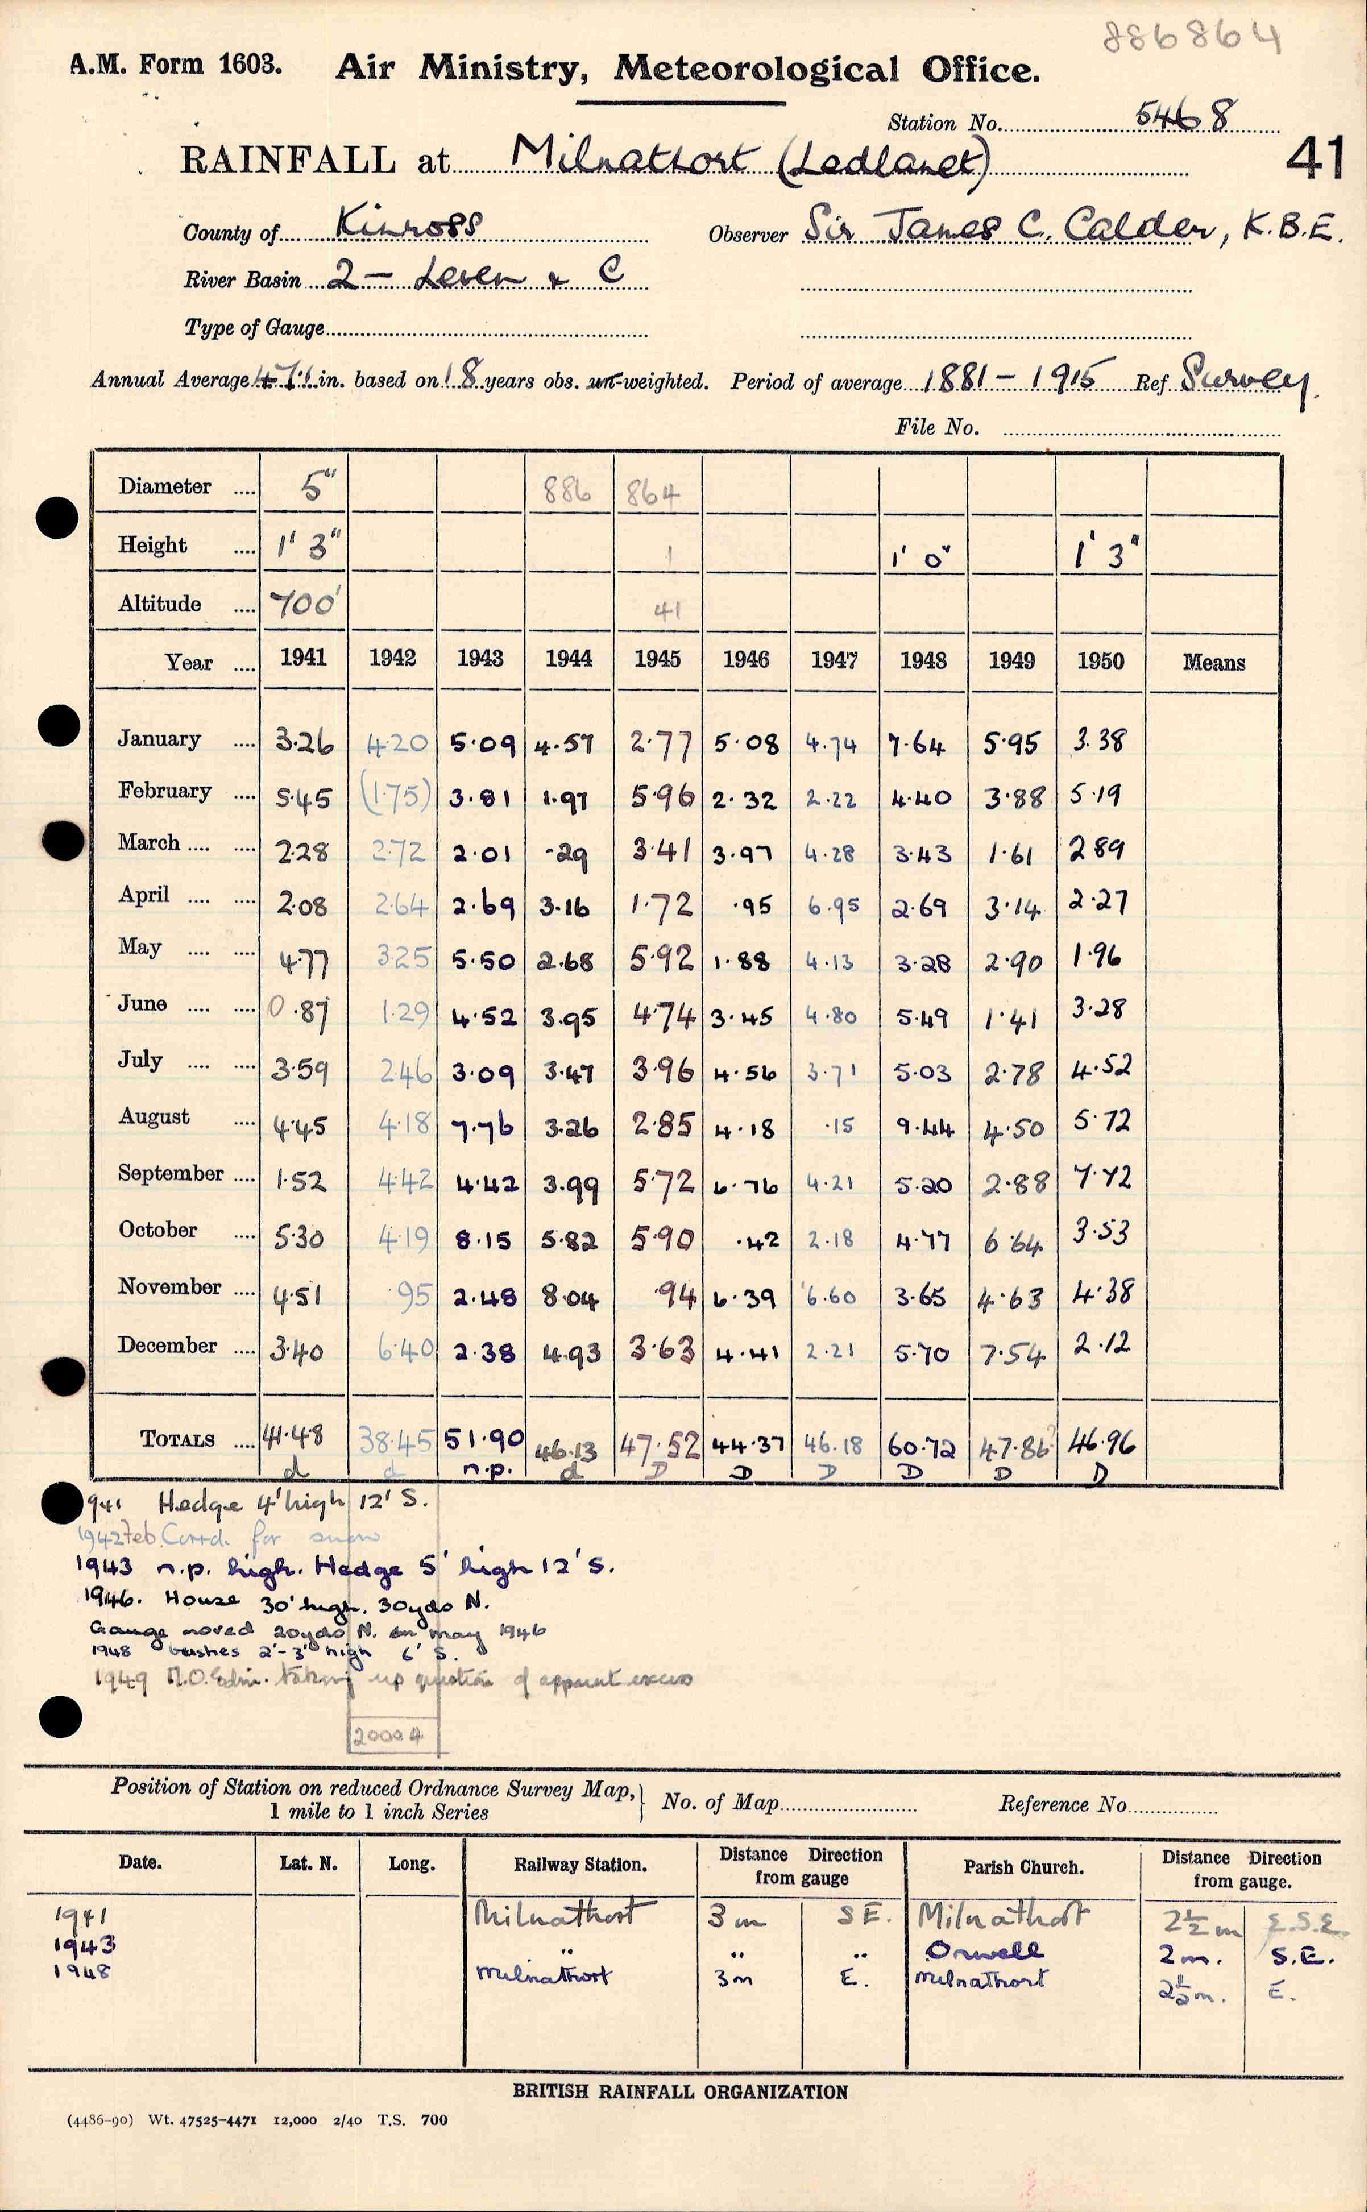 886864
A.M. Form 1603. Air Ministry, Meteorological Office.
Station No. 5468
41
RAINFALL at Milnathort (Ledlanet)
County of Kinross Observer Sir James C. Calder, K.B.E.
River Basin 2 – Leven & C
Type of Gauge
Annual Average 47.1 in. based on 18 years obs. un-weighted. Period of average 1881 – 1915 Ref Survey.
File No.
Diameter .... 5" 886 864
Height .... 1' 3" 1 1' 0" 1' 3"
Altitude .... 700' 41
Year .... 1941 1942 1943 1944 1945 1946 1947 1948 1949 1950 Means
January .... 3.26 4.20 5.09 4.57 2.77 5.08 4.74 7.64 5.95 3.38
February .... 5.45 (1.75) 3.81 1.97 5.96 2.32 2.22 4.40 3.88 5.19
March .... .... 2.28 2.72 2.01 .29 3.41 3.97 4.28 3.43 1.61 2.89
April .... .... 2.08 2.64 2.69 3.16 1.72 .95 6.95 2.69 3.14 2.27
May .... .... 4.77 3.25 5.50 2.68 5.92 1.88 4.13 3.28 2.90 1.96
June .... .... 0.87 1.29 4.52 3.95 4.74 3.45 4.80 5.49 1.41 3.28
July .... .... 3.59 2.46 3.09 3.47 3.96 4.56 3.71 5.03 2.78 4.52
August .... 4.45 4.18 7.76 3.26 2.85 4.18 .15 9.44 4.50 5.72
September .... 1.52 4.42 4.42 3.99 5.72 6.76 4.21 5.20 2.88 7.72
October .... 5.30 4.19 8.15 5.82 5.90 .42 2.18 4.77 6.64 3.53
November .... 4.51 .95 2.48 8.04 .94 6.39 6.60 3.65 4.63 4.38
December .... 3.40 6.40 2.38 4.93 3.63 4.41 2.21 5.70 7.54 2.12
TOTALS .... 41.48 38.45 51.90 46.13 47.52 44.37 46.18 60.72 47.86? 46.96
d d n.p. d D D D D D D
1941 Hedge 4' high 12' S.
1942 Feb. Corrd. for snow
1943 n.p. high. Hedge 5' high 12' S.
1946. House 30' high. 30yds N.
Gauge moved 20yds N. in May 1946
1948 bushes 2'-3' high 6' S.
1949 M.O. Edin. taking up question of apparent excess
2000 4
Position of Station on reduced Ordnance Survey Map, 1 mile to 1 inch Series } No. of Map Reference No.
Date. Lat. N. Long. Railway Station. Distance Direction from gauge Parish Church. Distance Direction from gauge.
1941 Milnathort 3 m S E. Milnathort 2½ m E.S.E.
1943 " " " Orwell 2 m. S.E.
1948 Milnathort 3m E. Milnathort 2½ m. E.
BRITISH RAINFALL ORGANIZATION
(4486-90) Wt. 47525-4471 12,000 2/40 T.S. 700